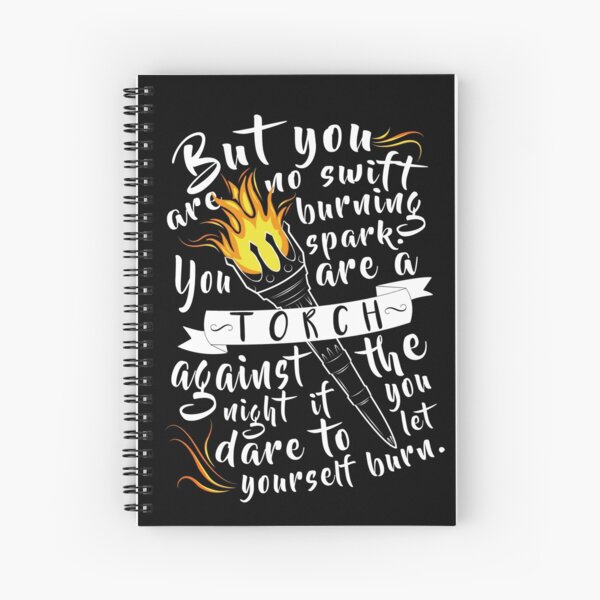 But you
are no swift
burning
spark.
You are a
TORCH
against the
night if you
dare to let
yourself burn.